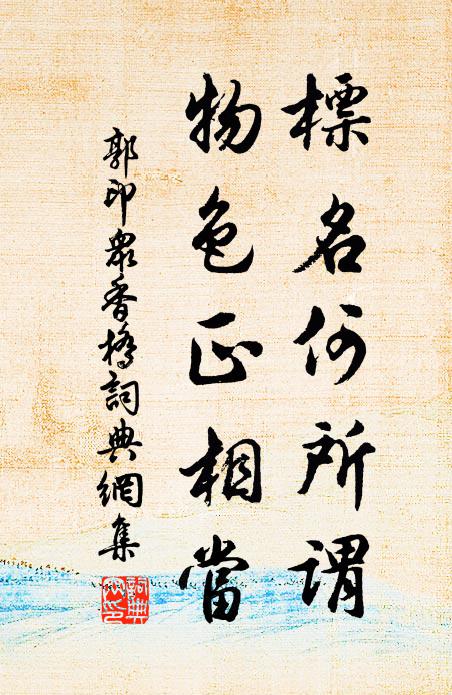 標名何所謂
物色正相當
郭印眾香橋詞典網集
詞典